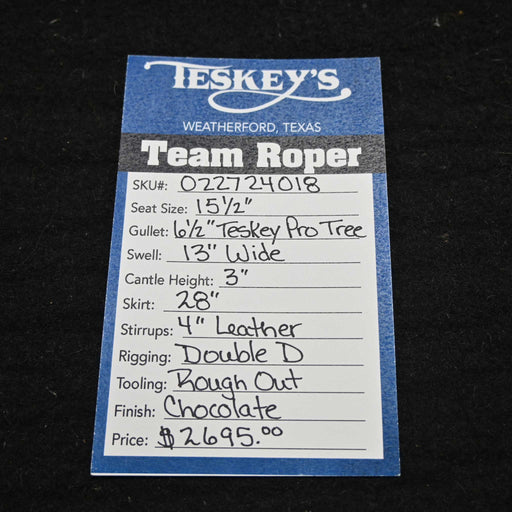 TESKEY'S
WEATHERFORD, TEXAS
Team Roper
SKU#: 022724018
Seat Size: 15 1/2"
Gullet: 6 1/2" Teskey Pro Tree
Swell: 13" Wide
Cantle Height: 3"
Skirt: 28"
Stirrups: 4" Leather
Rigging: Double D
Tooling: Rough Out
Finish: Chocolate
Price: $2695.00